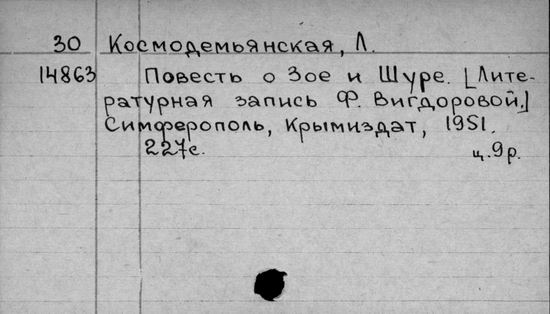 30 Космодемьянская, Л.
14863 Повесть о Зое и Шуре. [Лите-
ратурная запись Ф. Вигдоровой.]
Симферополь, Крымиздат, 1951.
227с. ц. 9 р.